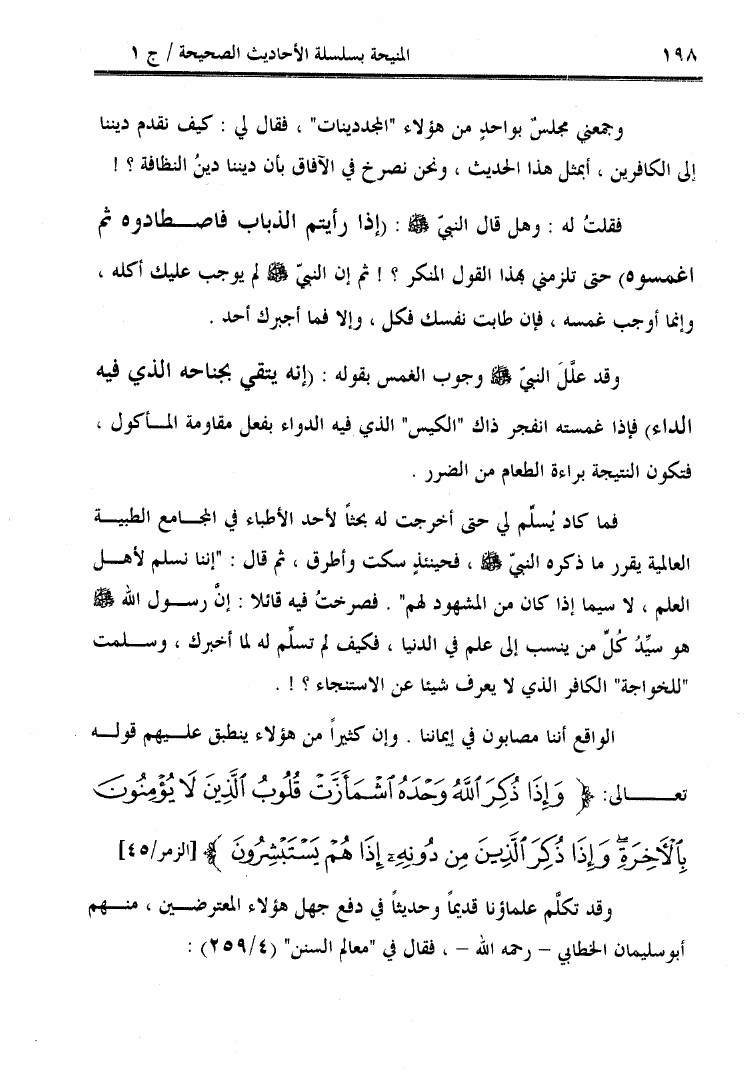 ١٩٨ المنيحة بسلسلة الأحاديث الصحيحة / ج ١
وجمعني مجلسٌ بواحدٍ من هؤلاء "المجددينات" ، فقال لي : كيف نقدم ديننا
إلى الكافرين ، أبمثل هذا الحديث ، ونحن نصرخ في الآفاق بأن ديننا دينُ النظافة ؟ !
فقلتُ له : وهل قال النبيّ ﷺ : (إذا رأيتم الذباب فاصطادوه ثم
اغمسوه) حتى تلزمني بهذا القول المنكر ؟ ! ثم إن النبيّ ﷺ لم يوجب عليك أكله ،
وإنما أوجب غمسه ، فإن طابت نفسك فكل ، وإلا فما أجبرك أحد .
وقد علَّلَ النبيّ ﷺ وجوب الغمس بقوله : (إنه يتقي بجناحه الذي فيه
الداء) فإذا غمسته انفجر ذاك "الكيس" الذي فيه الدواء بفعل مقاومة المأكول ،
فتكون النتيجة براءة الطعام من الضرر .
فما كاد يُسلِّم لي حتى أخرجت له بحثاً لأحد الأطباء في المجامع الطبية
العالمية يقرر ما ذكره النبيّ ﷺ ، فحينئذٍ سكت وأطرق ، ثم قال : "إننا نسلم لأهل
العلم ، لا سيما إذا كان من المشهود لهم" . فصرختُ فيه قائلا : إنَّ رسول الله ﷺ
هو سيِّدُ كُلِّ من ينسب إلى علم في الدنيا ، فكيف لم تسلِّم له لما أخبرك ، وسلمت
"للخواجة" الكافر الذي لا يعرف شيئا عن الاستنجاء ؟ ! .
الواقع أننا مصابون في إيماننا . وإن كثيراً من هؤلاء ينطبق عليهم قوله
تعالى: ﴿ وَإِذَا ذُكِرَ ٱللَّهُ وَحْدَهُ ٱشْمَأَزَّتْ قُلُوبُ ٱلَّذِينَ لَا يُؤْمِنُونَ
بِٱلْآخِرَةِ ۖ وَإِذَا ذُكِرَ ٱلَّذِينَ مِن دُونِهِۦٓ إِذَا هُمْ يَسْتَبْشِرُونَ ﴾ [الزمر/٤٥]
وقد تكلَّم علماؤنا قديماً وحديثاً في دفع جهل هؤلاء المعترضين ، منهم
أبو سليمان الخطابي – رحمه الله – ، فقال في "معالم السنن" (٢٥٩/٤) :